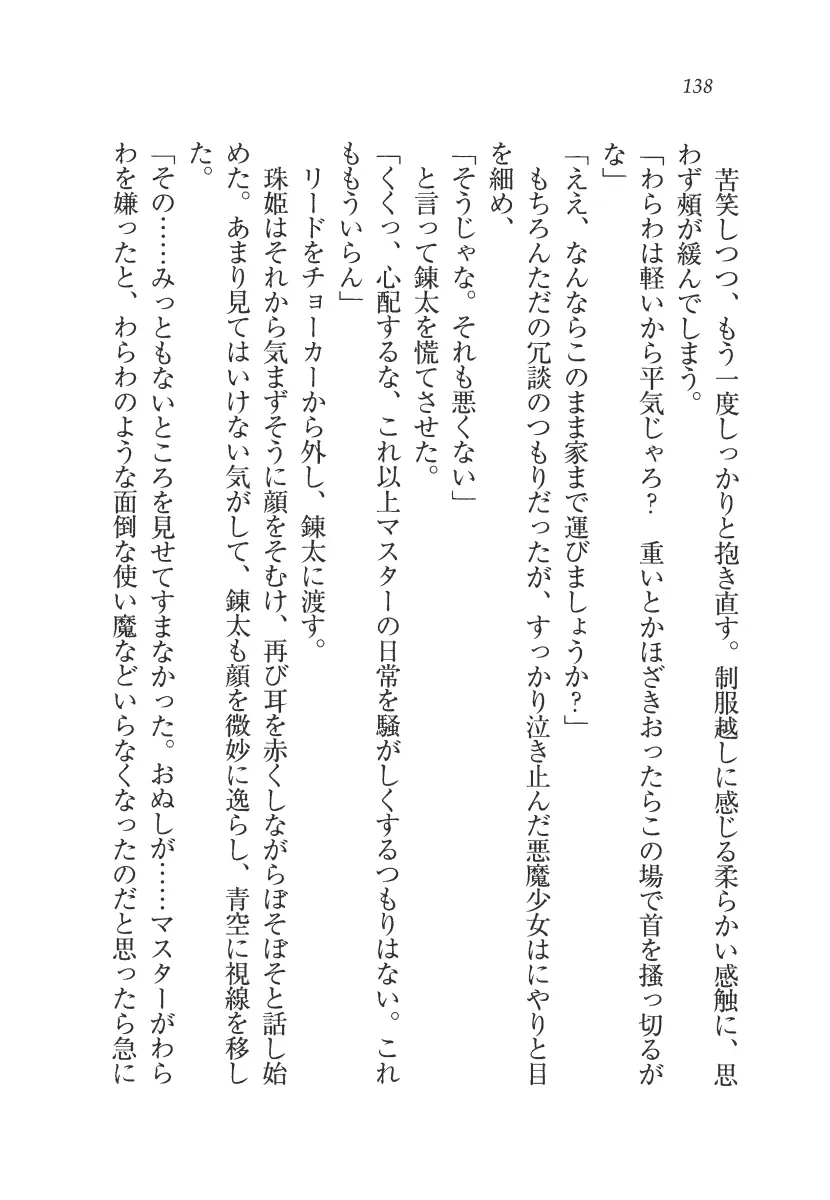 138
　苦笑しつつ、もう一度しっかりと抱き直す。制服越しに感じる柔らかい感触に、思
わず頬が緩んでしまう。
「わらわは軽いから平気じゃろ？　重いとかほざきおったらこの場で首を掻っ切るが
な」
「ええ、なんならこのまま家まで運びましょうか？」
　もちろんただの冗談のつもりだったが、すっかり泣き止んだ悪魔少女はにやりと目
を細め、
「そうじゃな。それも悪くない」
　と言って錬太を慌てさせた。
「くくっ、心配するな、これ以上マスターの日常を騒がしくするつもりはない。これ
ももういらん」
　リードをチョーカーから外し、錬太に渡す。
　珠姫はそれから気まずそうに顔をそむけ、再び耳を赤くしながらぼそぼそと話し始
めた。あまり見てはいけない気がして、錬太も顔を微妙に逸らし、青空に視線を移し
た。
「その……みっともないところを見せてすまなかった。おぬしが……マスターがわら
わを嫌ったと、わらわのような面倒な使い魔などいらなくなったのだと思ったら急に